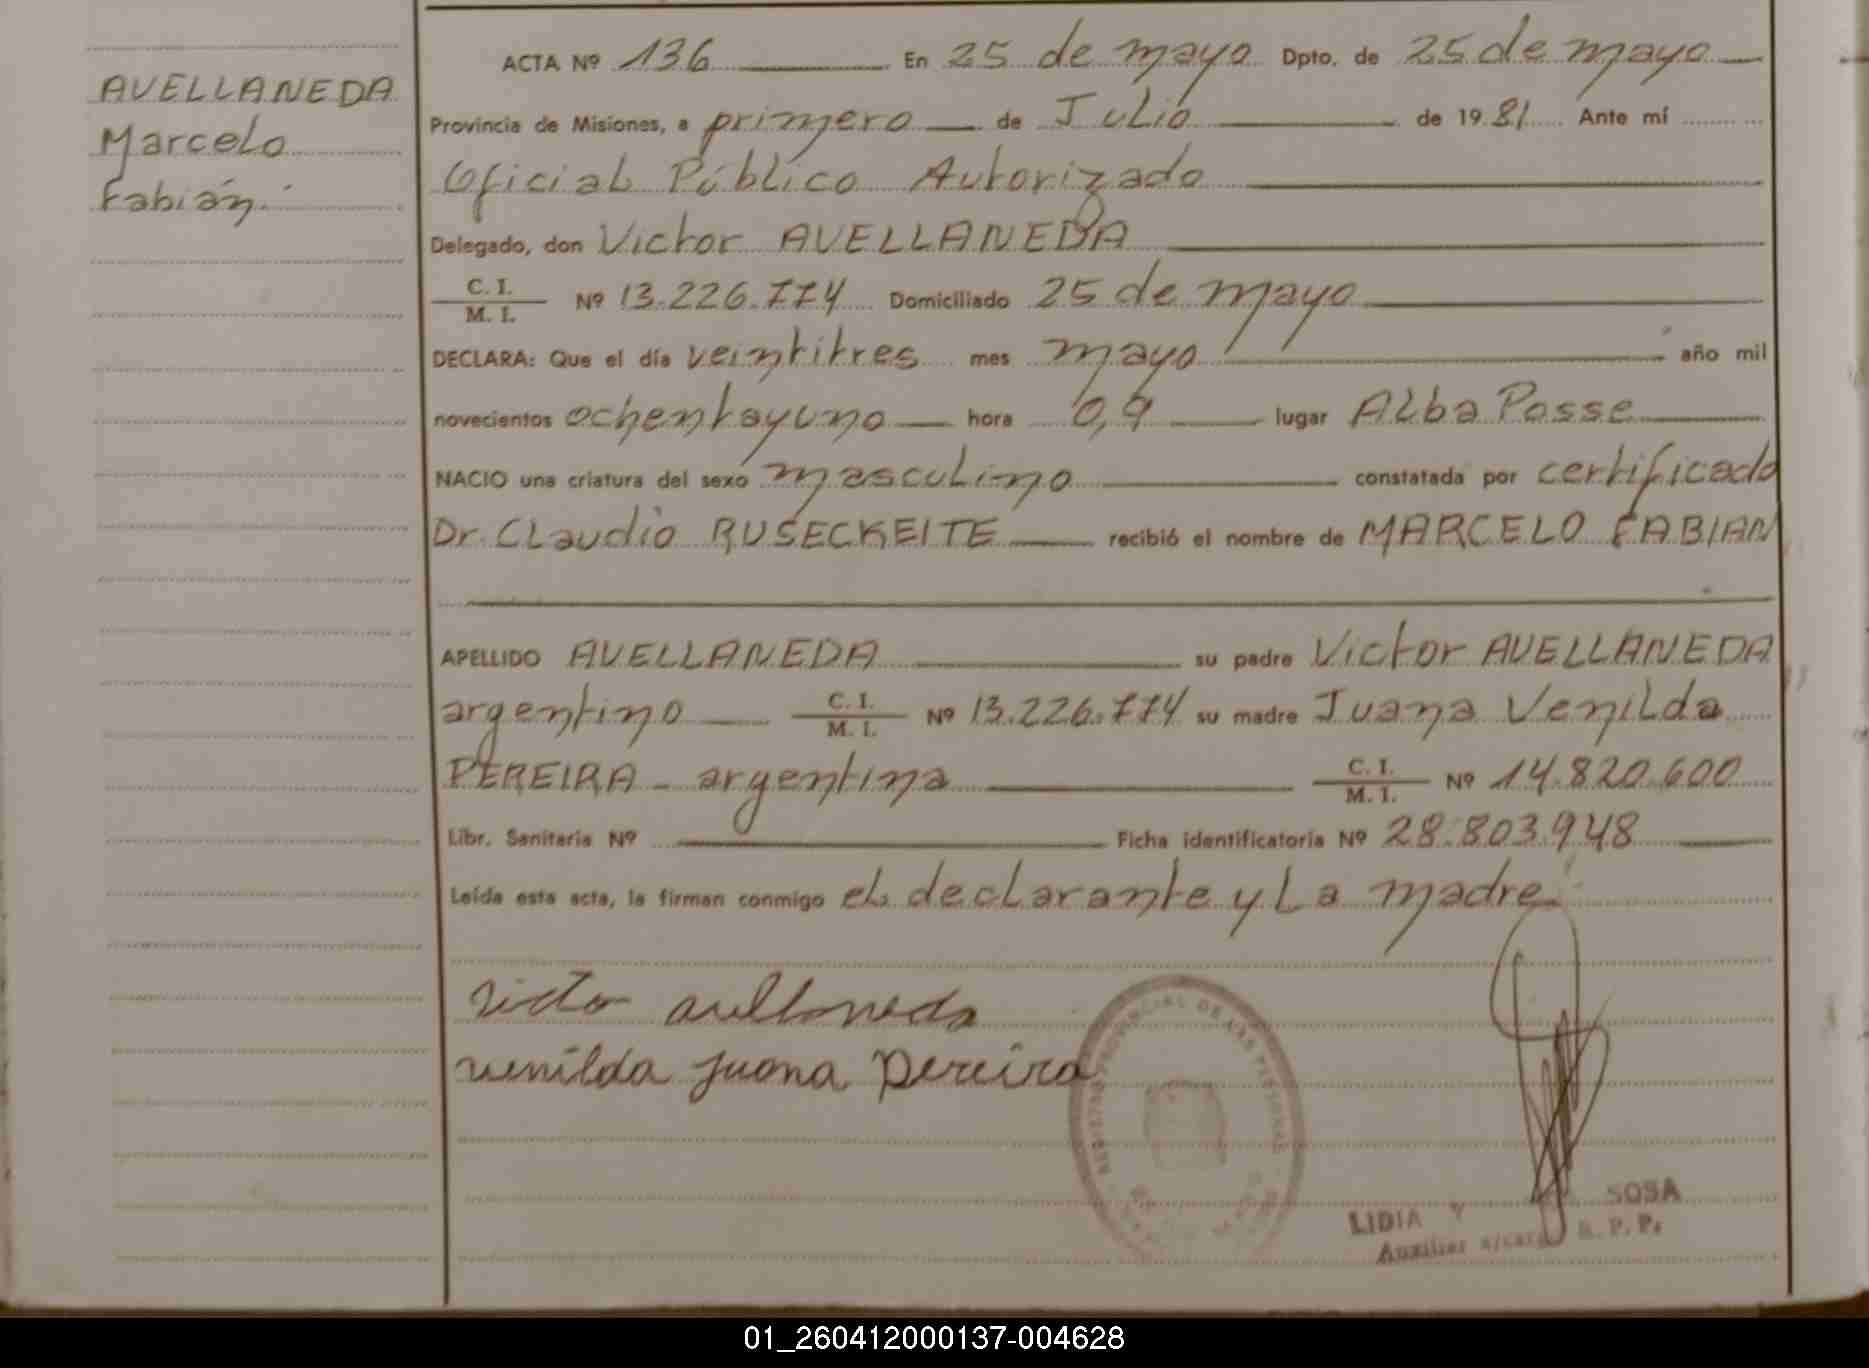 AVELLANEDA
Marcelo
Fabián.
ACTA Nº 136 En 25 de mayo Dpto. de 25 de mayo
Provincia de Misiones, a primero de Julio de 19 81 Ante mí
Oficial Público Autorizado
Delegado, don Victor AVELLANEDA
C. I.
M. I. Nº 13.226.774 Domiciliado 25 de mayo
DECLARA: Que el día veintitres mes mayo año mil
novecientos ochentayuno hora 0,9 lugar Alba Posse
NACIO una criatura del sexo masculino constatada por certificado
Dr. Claudio RUSECKEITE recibió el nombre de MARCELO FABIAN
APELLIDO AVELLANEDA su padre Victor AVELLANEDA
argentino C. I. M. I. Nº 13.226.774 su madre Juana Venilda
PEREIRA - argentina C. I. M. I. Nº 14.820.600
Libr. Sanitaria Nº Ficha identificatoria Nº 28.803.948
Leída esta acta, la firman conmigo el declarante y La madre
victor avellaneda
venilda juana pereira
PROVINCIAL DE LAS PERSONAS
LIDIA SOSA
Auxiliar R. P. P.
01_260412000137-004628